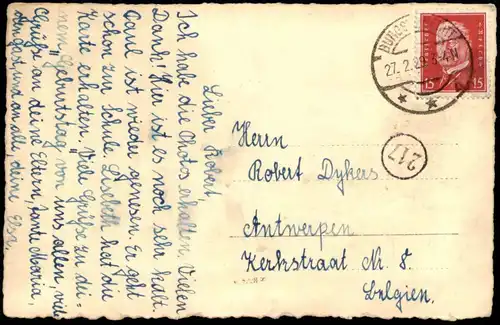 Lieber Robert,
Ich habe die Photos erhalten. Vielen
Dank! Hier ist es noch sehr kalt.
Paul ist wieder genesen. Er geht
schon zur Schule. Liesbeth hat die
Karte erhalten. Viele Grüße zu dei-
nem Geburtstag, von uns allen, viele
Grüße an deine Eltern, tante Maria,
August und an alle, deine Elsa.
27.2.29
Deutsches Reich
15 15
217
Herrn
Robert Dykers
Antwerpen
Kerkstraat Nr. 8.
Belgien.